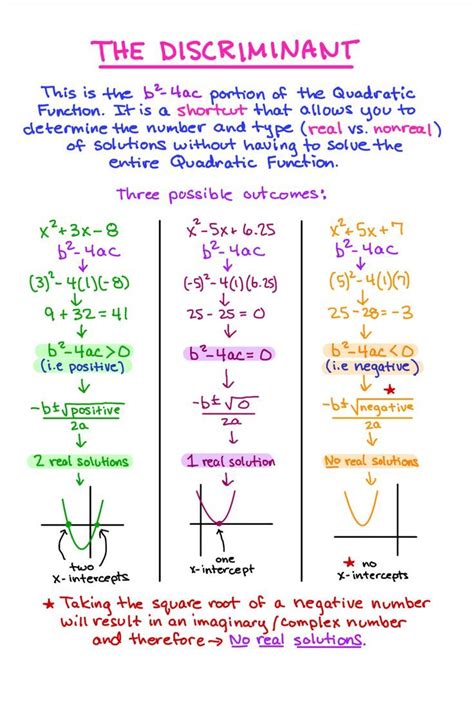 THE DISCRIMINANT
This is the b²-4ac portion of the Quadratic
Function. It is a shortcut that allows you to
determine the number and type (real vs. nonreal)
of solutions without having to solve the
entire Quadratic Function.
Three possible outcomes:
x²+3x-8
b²-4ac
(3)²-4(1)(-8)
9+32=41
b²-4ac>0
(i.e positive)
-b±√positive
2a
2 real solutions
two
x-intercepts
x²-5x+6.25
b²-4ac
(-5)²-4(1)(6.25)
25-25=0
b²-4ac=0
-b±√0
2a
1 real solution
one
x-intercept
x²+5x+7
b²-4ac
(5)²-4(1)(7)
25-28=-3
b²-4ac<0
(i.e negative)
★
-b±√negative
2a
No real solutions
★ no
x-intercepts
★ Taking the square root of a negative number
will result in an imaginary/complex number
and therefore → No real solutions.